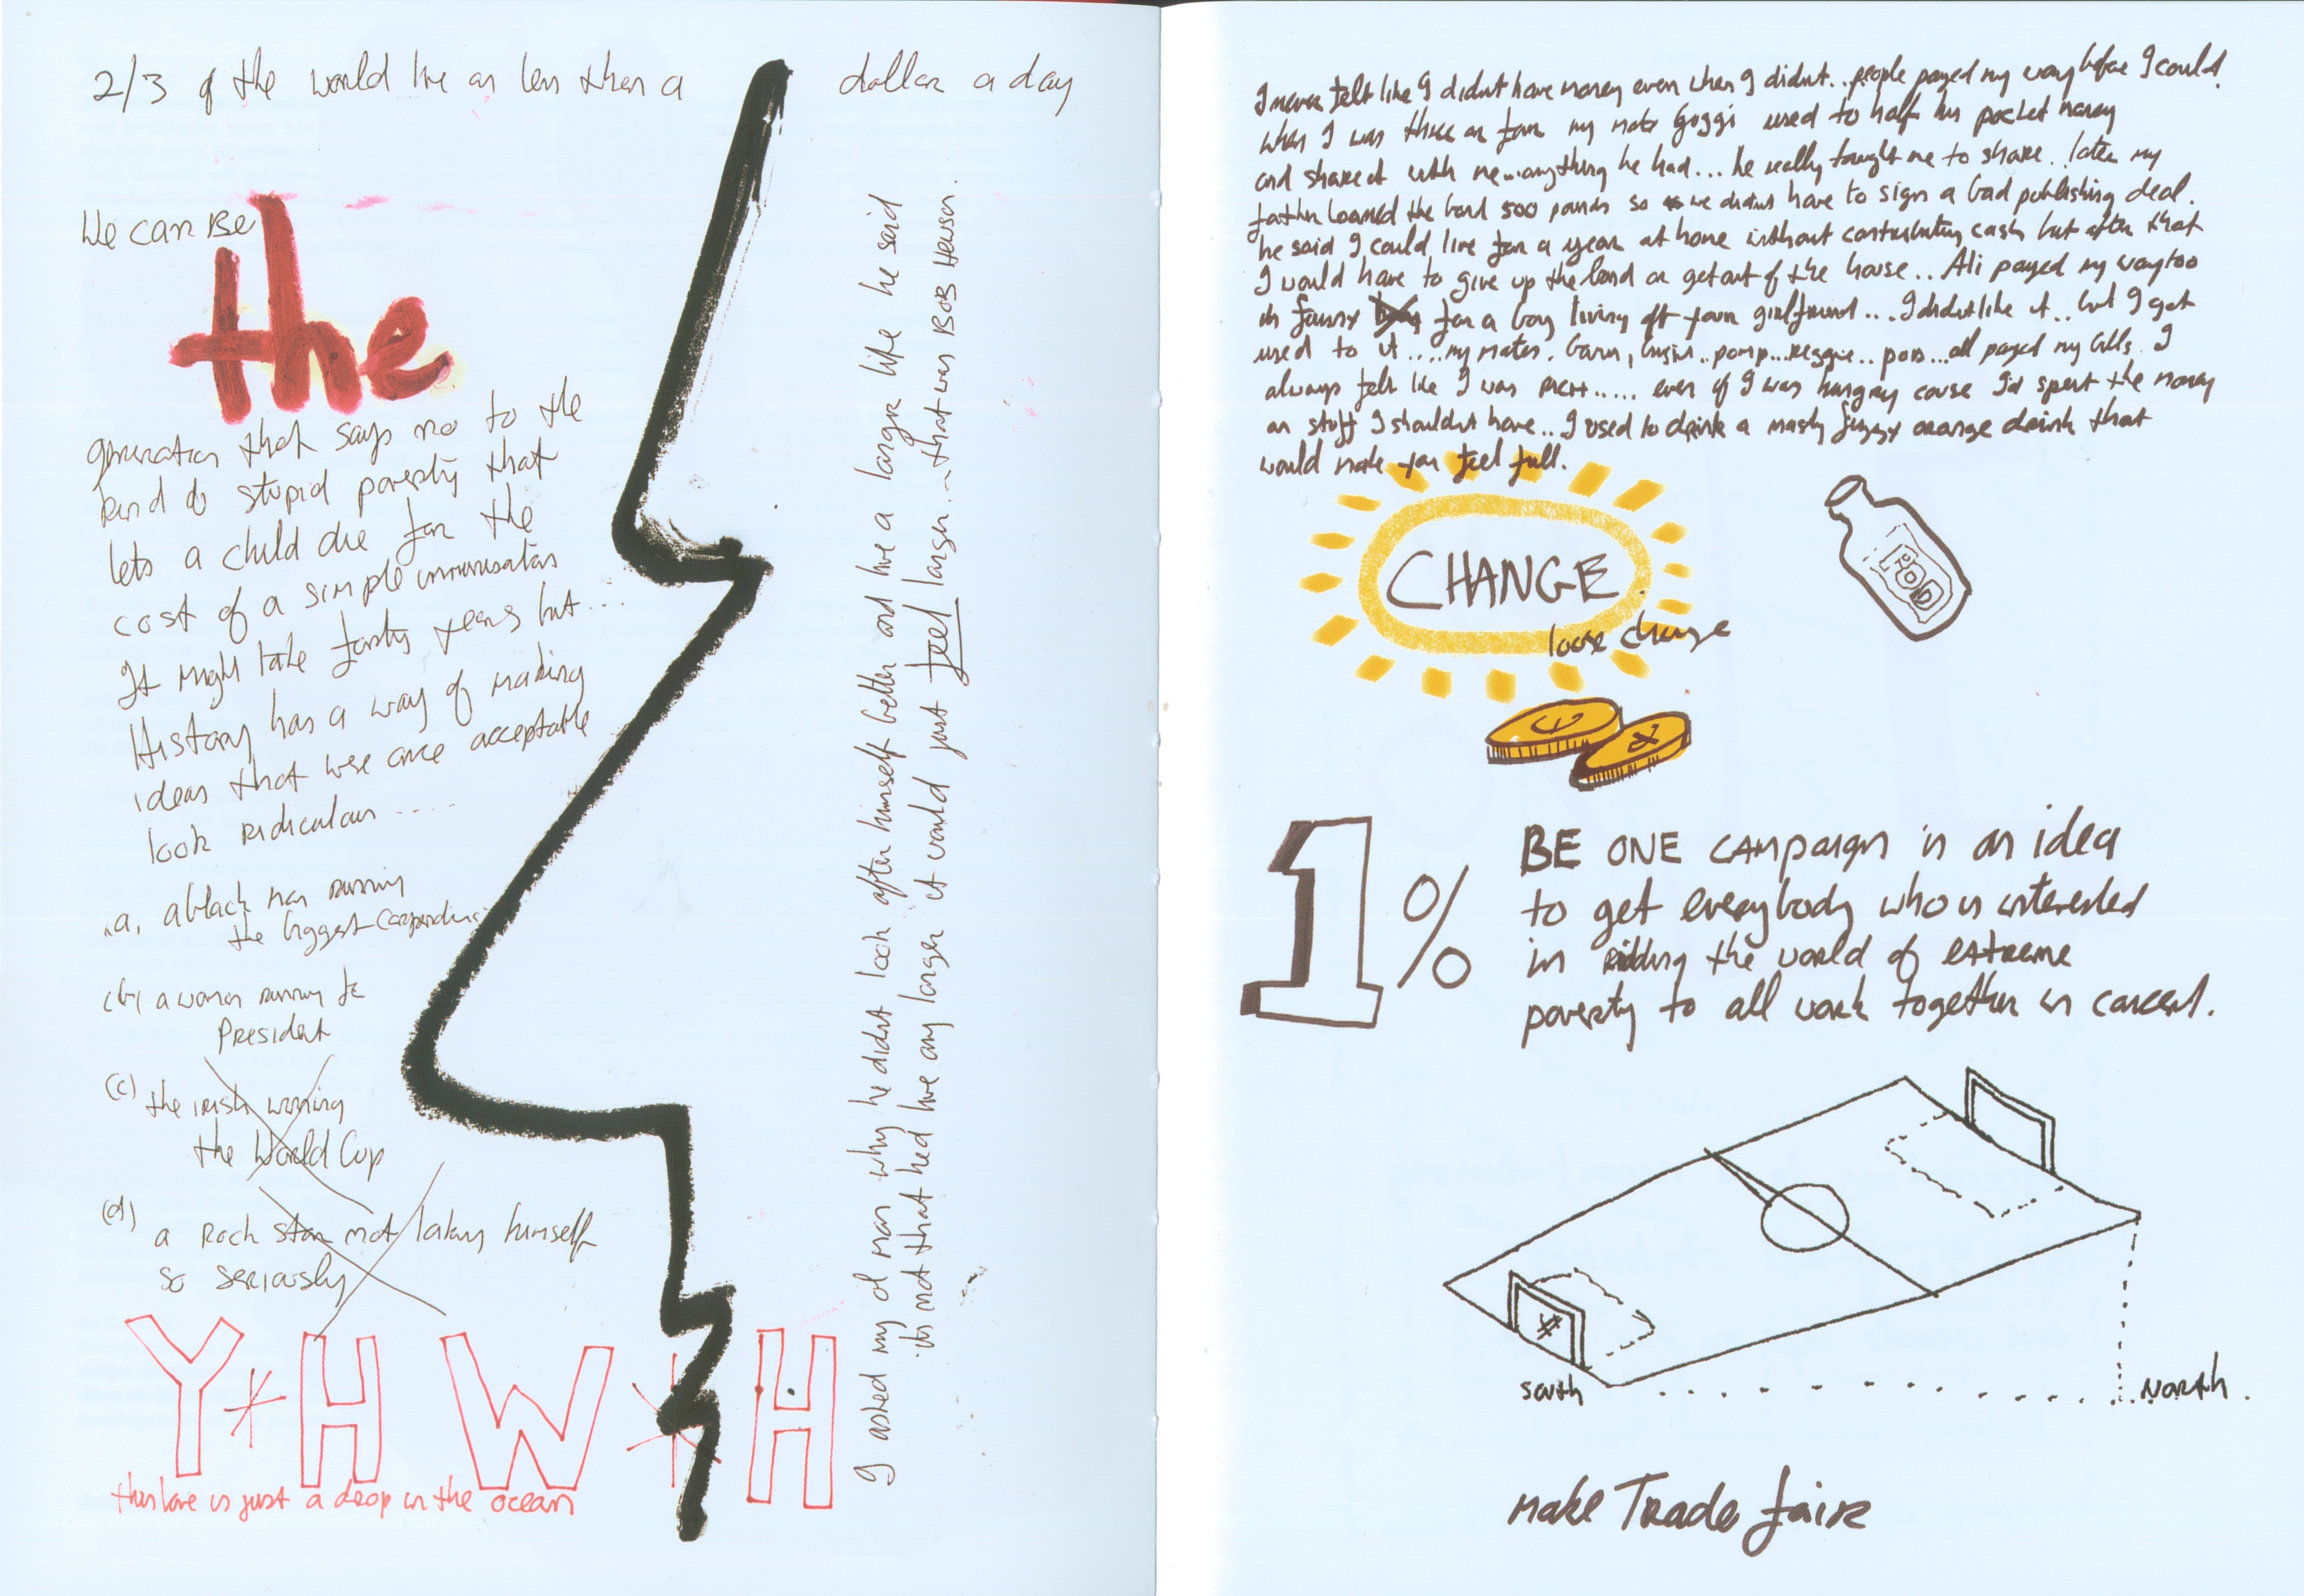 2/3 of the world live on less than a dollar a day
We can Be
the
generation that says no to the
kind of stupid poverty that
lets a child die for the
cost of a simple immunisation
It might take forty years but....
History has a way of making
ideas that were once acceptable
look ridiculous ....
a, a black man running
the biggest corporation
(b) a woman running for
President
(c) the irish winning
the World Cup
(d) a Rock star not taking himself
so seriously
Y*HW*H
this love is just a drop in the ocean
I asked my ol man why he didnt look after himself better and live a larger life he said
its not that hed live any longer it would just feel longer... that was BOB Hewson.
I never felt like I didnt have money even when I didnt.. people payed my way before I could.
when I was three or four my mate Guggi used to half his pocket money
and share it with me...anything he had... he really taught me to share. later my
father loaned the band 500 pounds so we didnt have to sign a bad publishing deal.
he said I could live for a year at home without contributing cash but after that
I would have to give up the band or get out of the house.. Ali payed my way too
its funny for a boy living off your girlfriend... I didnt like it.. but I got
used to it.... my mates. Gavin, Guggi.. pomp...Reggie.. pod...all payed my bills. I
always felt like I was rich...... even if I was hungry cause I'd spent the money
on stuff I shouldnt have.. I used to drink a nasty fizzy orange drink that
would make you feel full.
CHANGE.
loose change
FOOD
€
¥
1%
BE ONE campaign is an idea
to get everybody who is interested
in ridding the world of extreme
poverty to all work together in concert.
south
North.
make Trade fair